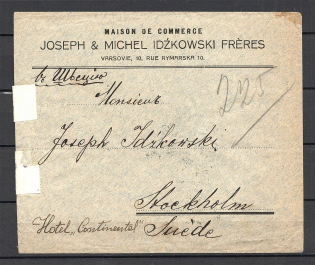 MAISON DE COMMERCE
JOSEPH & MICHEL IDŹKOWSKI FRÈRES
VARSOVIE, 10, RUE RYMARSKA 10.
въ Швецію
225
Monsieur
Joseph Idźkowski
Stockholm
Hotel „Continental"
Suède